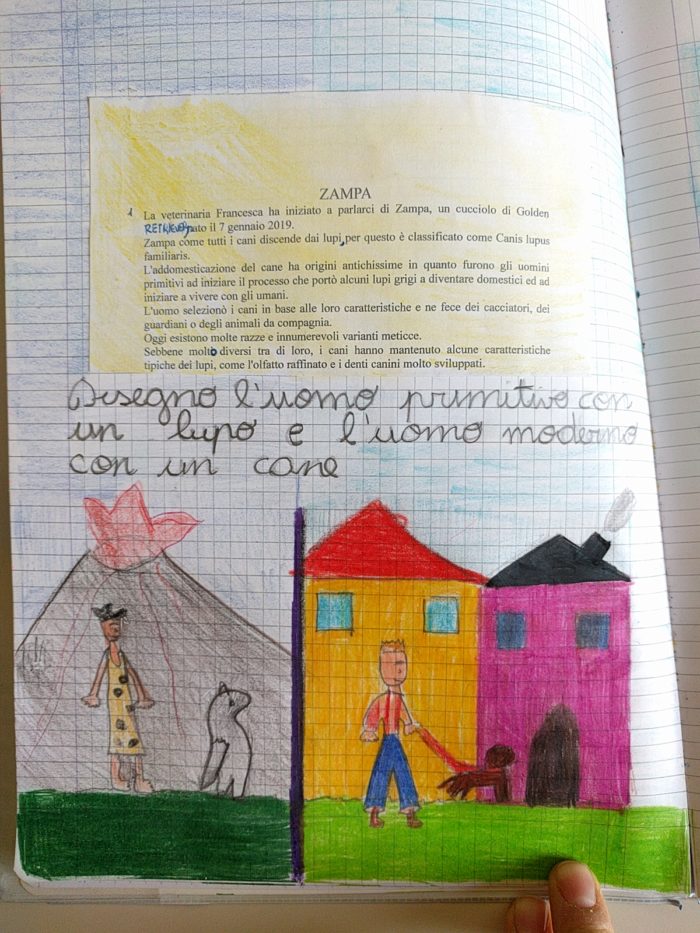 ZAMPA
1 La veterinaria Francesca ha iniziato a parlarci di Zampa, un cucciolo di Golden
RETRIEVER nato il 7 gennaio 2019.
Zampa come tutti i cani discende dai lupi, per questo è classificato come Canis lupus
familiaris.
L'addomesticazione del cane ha origini antichissime in quanto furono gli uomini
primitivi ad iniziare il processo che portò alcuni lupi grigi a diventare domestici ed ad
iniziare a vivere con gli umani.
L'uomo selezionò i cani in base alle loro caratteristiche e ne fece dei cacciatori, dei
guardiani o degli animali da compagnia.
Oggi esistono molte razze e innumerevoli varianti meticce.
Sebbene molto diversi tra di loro, i cani hanno mantenuto alcune caratteristiche
tipiche dei lupi, come l'olfatto raffinato e i denti canini molto sviluppati.
Disegno l'uomo primitivo con
un lupo e l'uomo moderno
con un cane